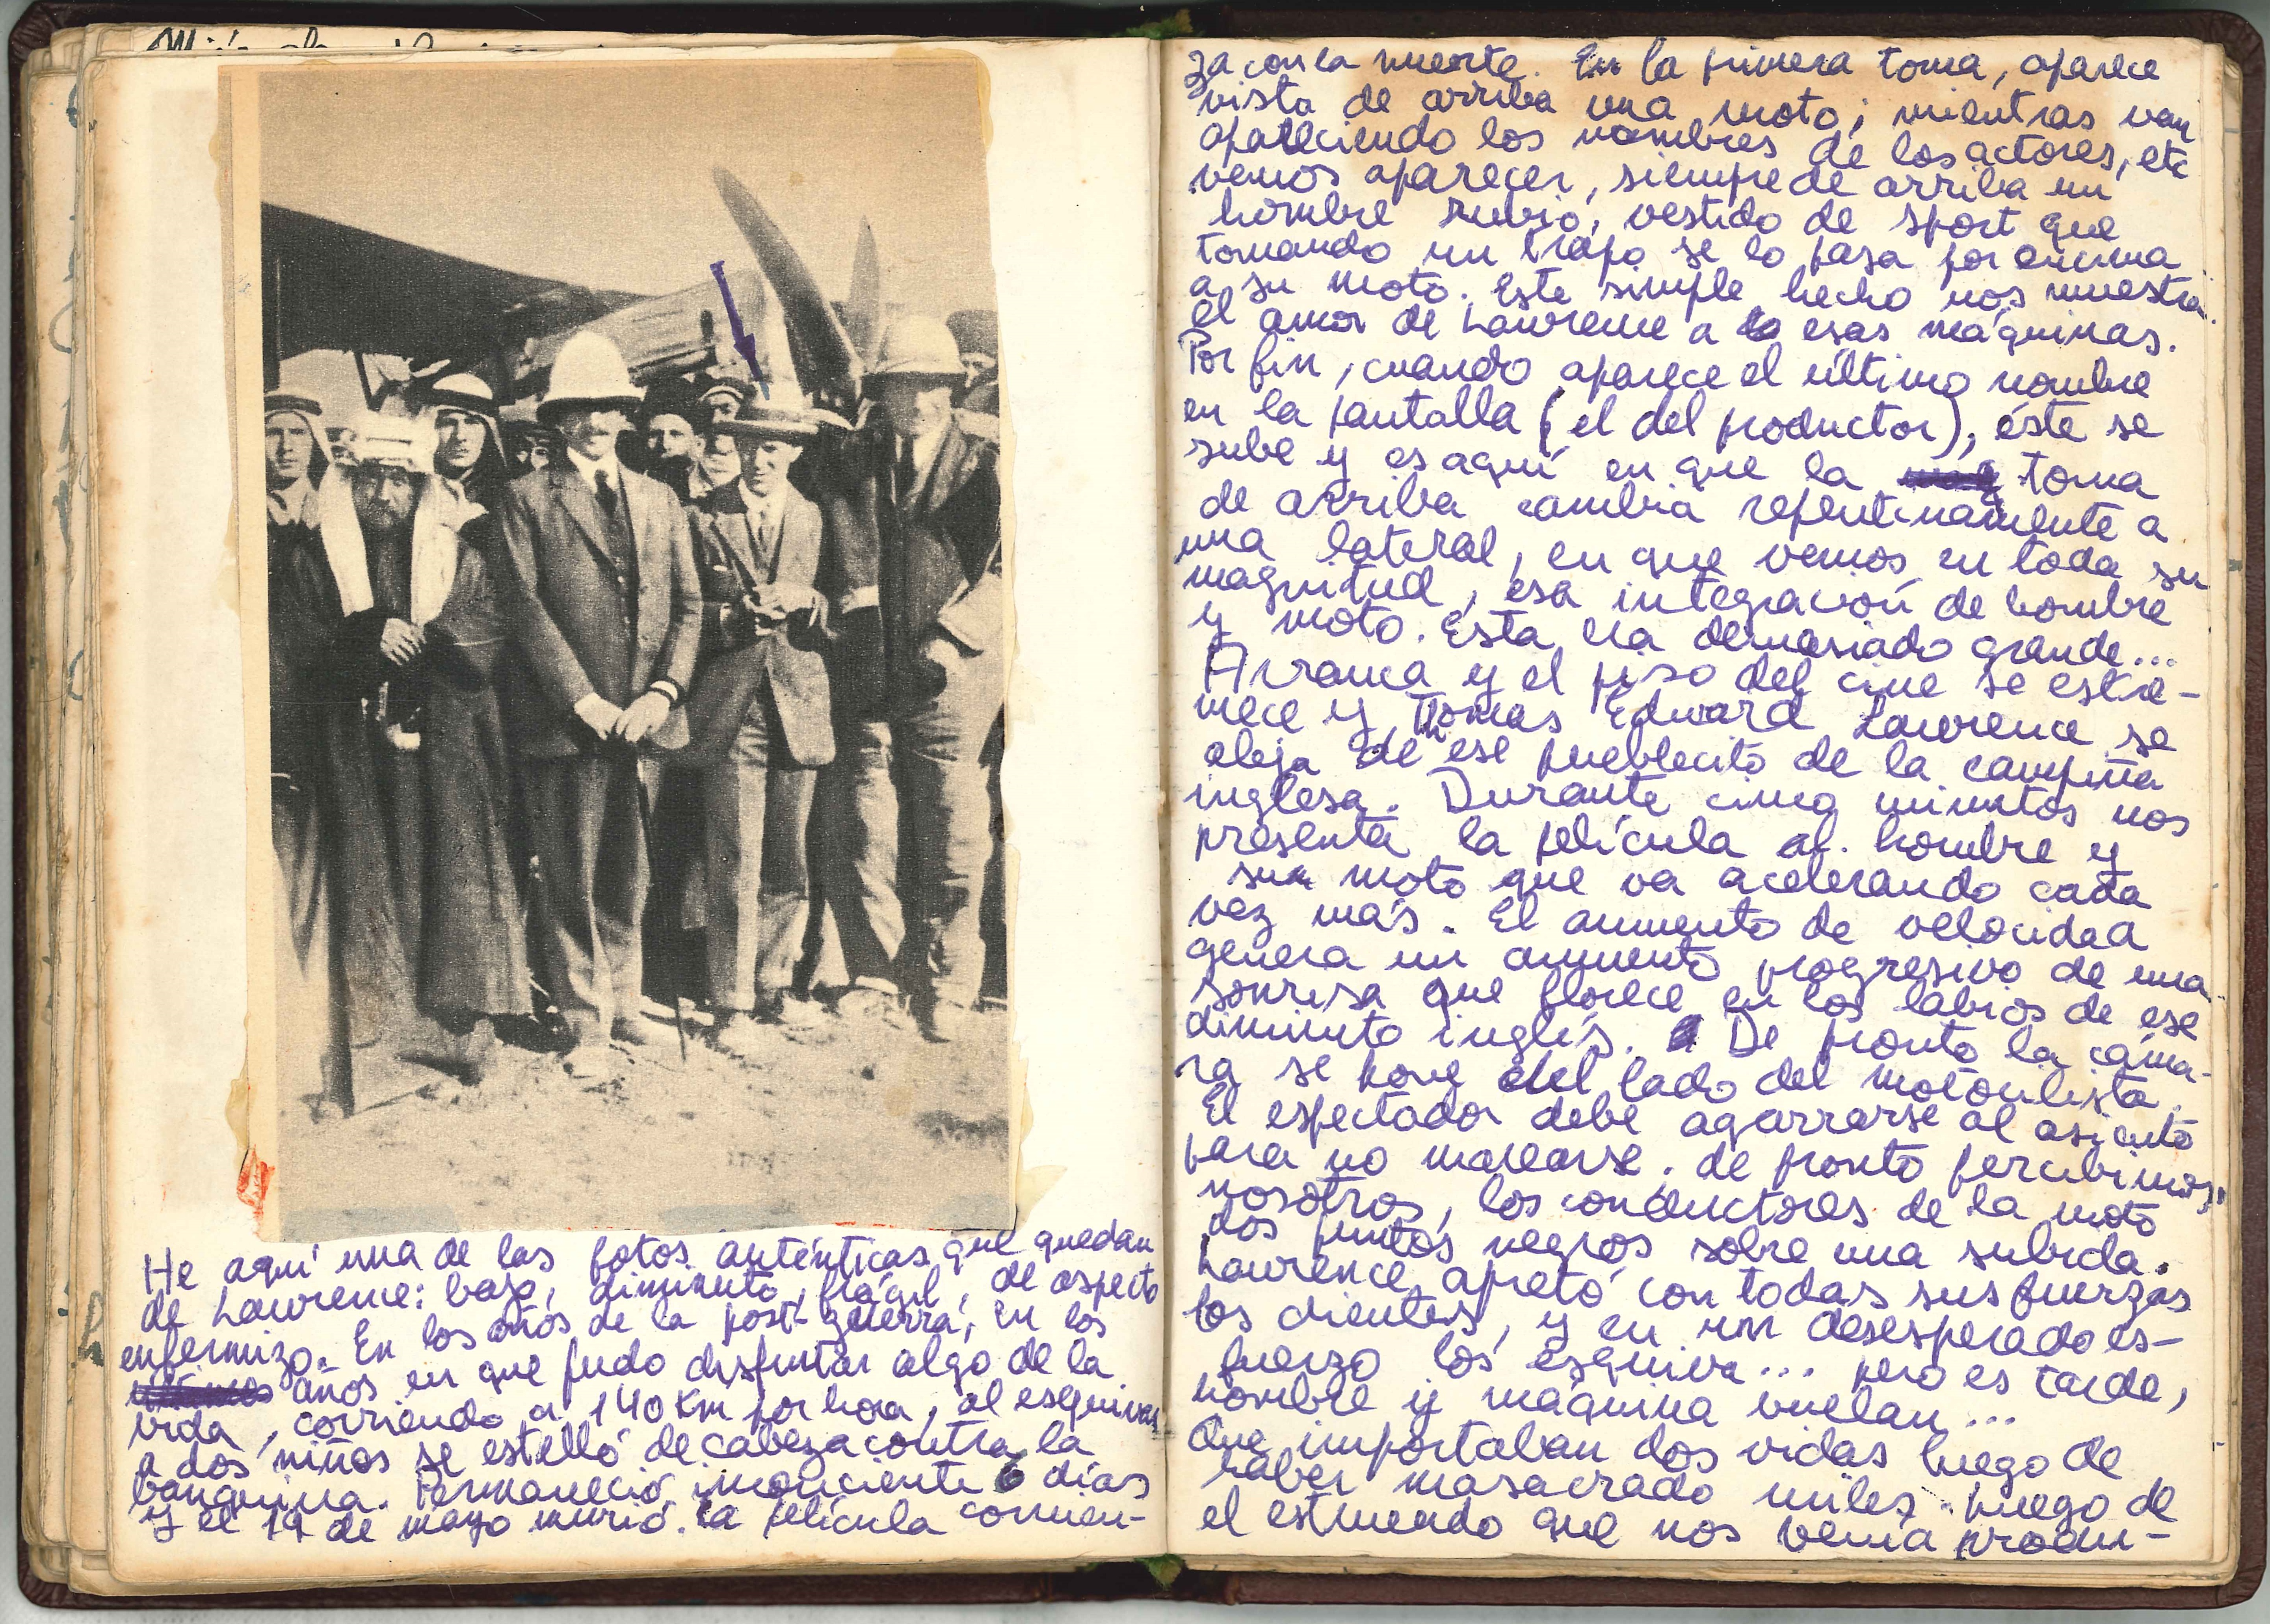 He aquí una de las fotos auténticas que quedan
de Lawrence: bajo, diminuto, frágil, de aspecto
enfermizo. En los años de la post-guerra, en los
años en que pudo disfrutar algo de la
vida, corriendo a 140 Km por hora, al esquivar
a dos niños se estelló de cabeza contra la
banquina. Permaneció inconciente 6 días
y el 19 de mayo murió. La película comien-
za con la muerte. En la primera toma, aparece
vista de arriba una moto; mientras van
apareciendo los nombres de los actores, etc
vemos aparecer, siempre de arriba un
hombre rubio, vestido de sport que
tomando un trapo se lo pasa por encima
a su moto. Este simple hecho nos muestra
el amor de Lawrence a esas máquinas.
Por fin, cuando aparece el último nombre
en la pantalla (el del productor), éste se
sube y es aquí en que la toma
de arriba cambia repentinamente a
una lateral, en que vemos en toda su
magnitud, esa integración de hombre
y moto. Esta era demasiado grande...
Arranca y el piso del cine se estre-
mece y Thomas Edward Lawrence se
aleja de ese pueblecito de la campiña
inglesa. Durante cinco minutos nos
presenta la película al hombre y
su moto que va acelerando cada
vez más. El aumento de velocidad
genera un aumento progresivo de una
sonrisa que florece en los labios de ese
diminuto inglés. De pronto la cáma-
ra se pone del lado del motociclista.
El espectador debe agarrarse al asiento
para no marearse. de pronto percibimos
nosotros, los conductores de la moto
dos puntos negros sobre una subida.
Lawrence apretó con todas sus fuerzas
los dientes, y en un desesperado es-
fuerzo los esquiva... pero es tarde,
hombre y máquina vuelan...
Que importaban dos vidas luego de
haber masacrado miles. Luego de
el estruendo que nos venía produ-